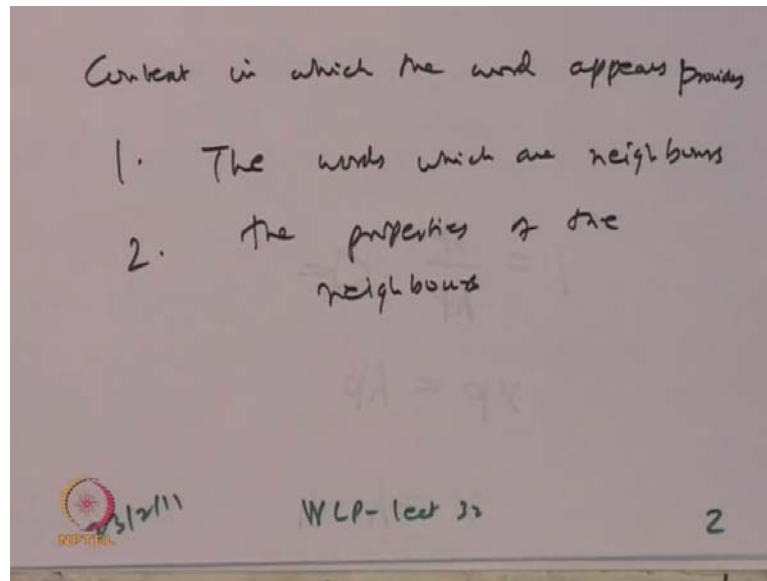 Context in which the word appears provides
1. The words which are neighbours
2. the properties of the
neighbours
NPTEL
3/2/11
WLP-lect 32
2